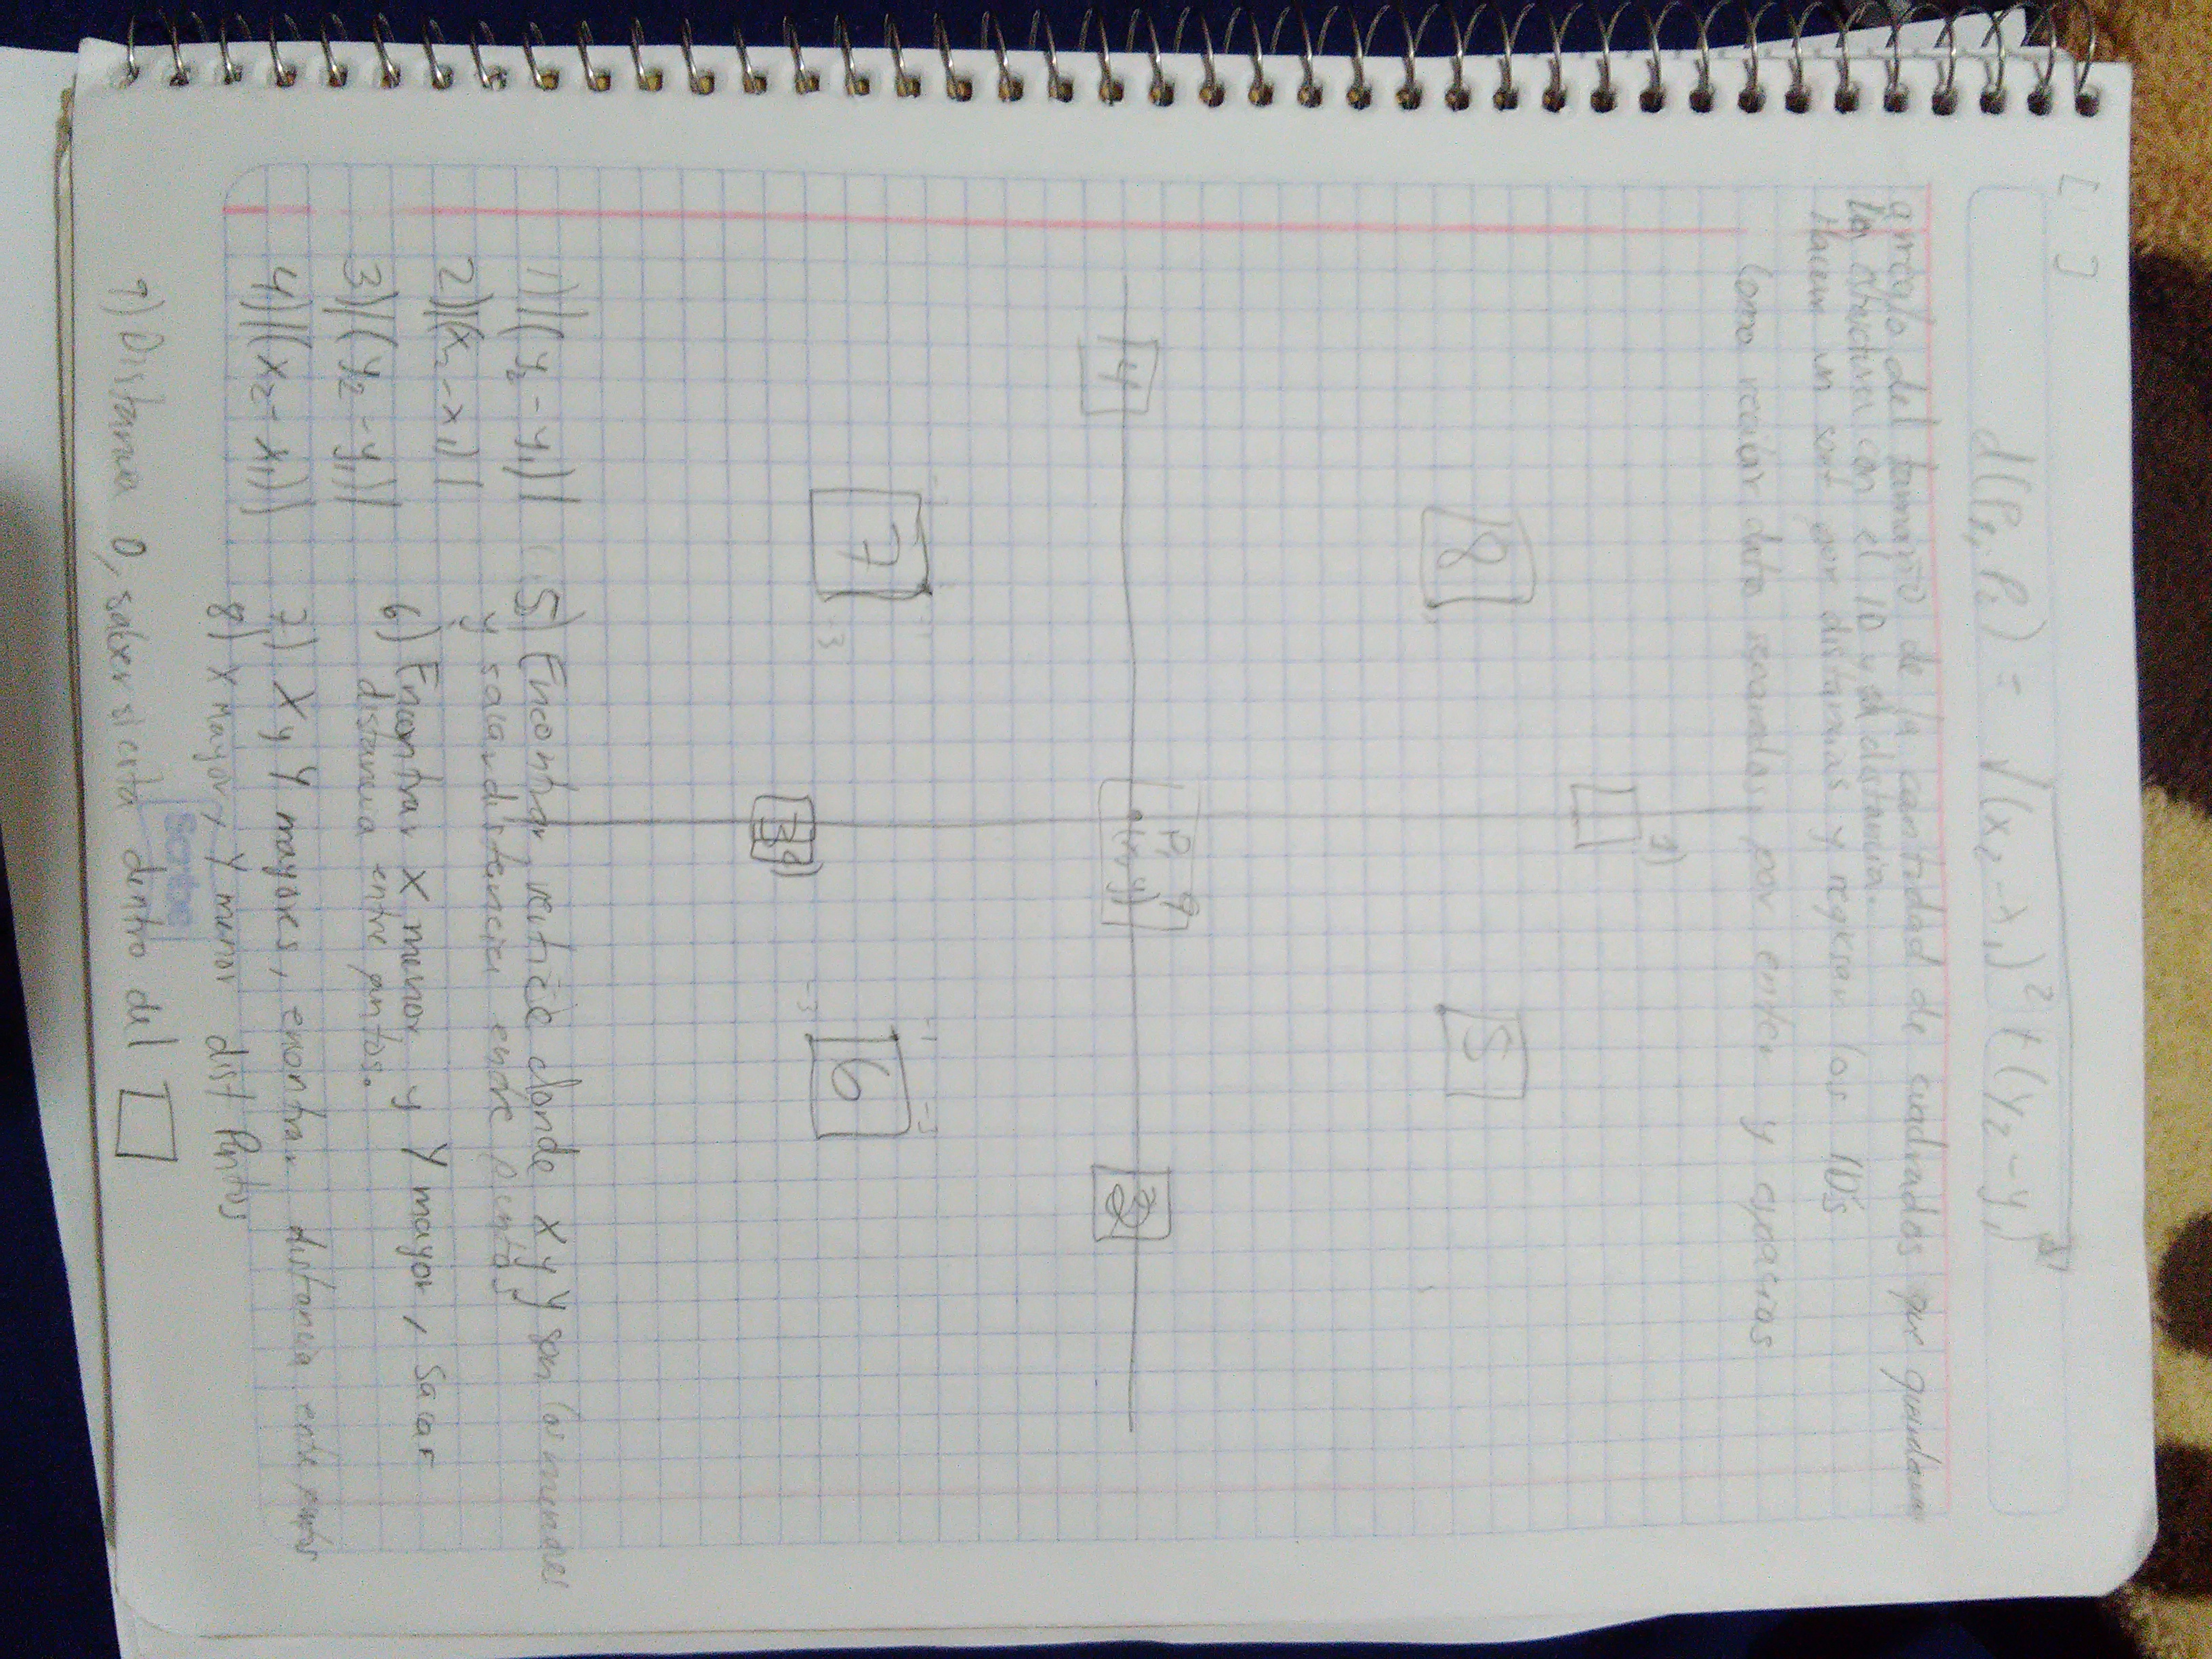 [ . ]
d(P₁, P₂) = √(x₂ - x₁)² + (y₂ - y₁)²
arreglo del tamaño de la cantidad de cuadrados que guardaran
la estructura con el ID y distancia.
Hacem un sort por distancias y regresar los ID's
Como recibir datos separados, por enter y espacios
1)
1
8
5
4
P, 9
(x, y)
2
7
-3
-1
3
3)
-3
6
-1
1) |(y₂ - y₁)|
2) |(x₂ - x₁)|
3) |(y₂ - y₁)|
4) |(x₂ - x₁)|
5) Encontrar vertice donde x y y son los menores
y sacar distancia entre puntos
6) Encontrar x menor y y mayor, sacar
distancia entre puntos.
7) x y y mayores, encontrar distancia entre puntos
8) x mayor y y menor dist Puntos
9) Distancia 0, saber si está dentro del □